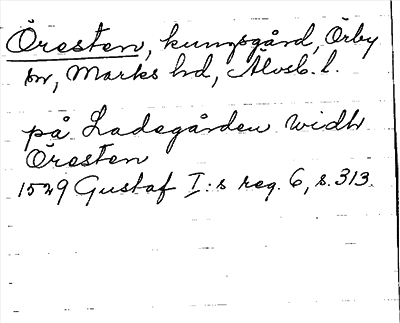 Öresten, kungsgård, Örby
sn, Marks hd, Älvsb. l.
på Ladegården widh
Öresten
1529 Gustaf I:s reg. 6, s. 313.